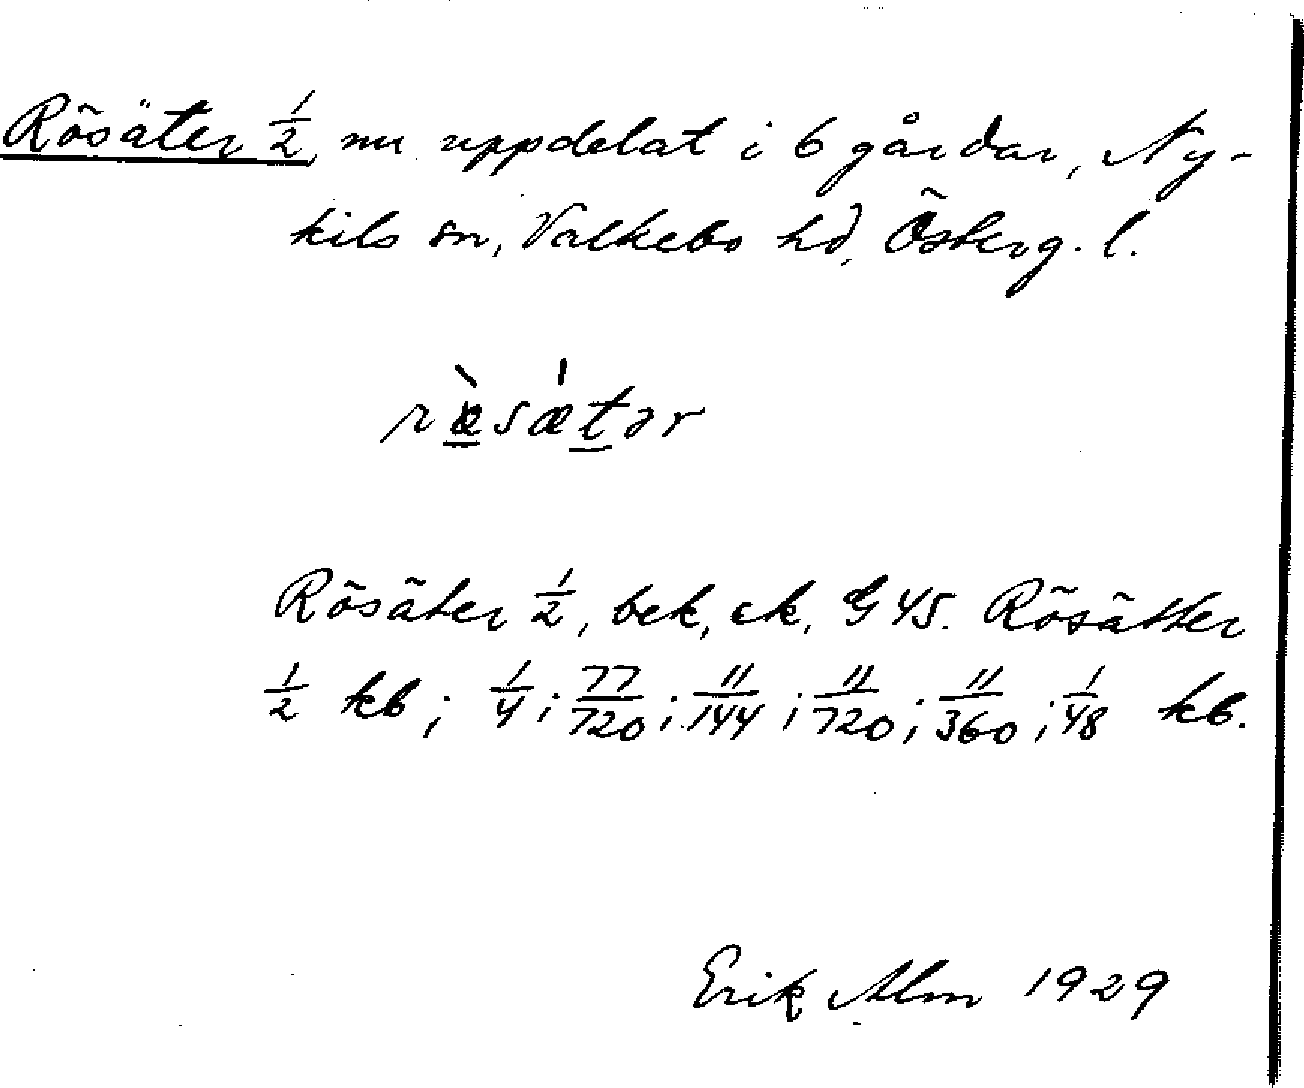 Rösäter 1/2, nu uppdelat i 6 gårdar, Ny-
kils sn, Valkebo hd, Österg. l.
ræ̀sǽtər
Rösäter 1/2, bek, ek, G 45. Rösätter
1/2 kb; 1/4; 77/720; 11/144; 11/720; 11/360; 1/48 kb.
Erik Alm 1929